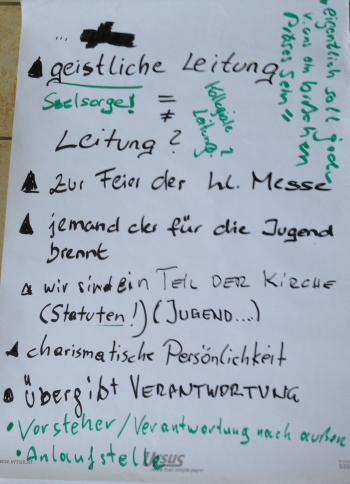 ...
geistliche Leitung
Seelsorge!
=
≠
Kollegiale
Leitung?
Leitung?
eigentlich soll jeder
v. uns ein bisschen
Präses sein"
zur Feier der hl. Messe
jemand der für die Jugend
brennt
wir sind ein TEIL DER KIRCHE
(Statuten!) (JUGEND....)
charismatische Persönlichkeit
übergibt VERANTWORTUNG
• Vorsteher/Verantwortung nach außen
• Anlaufstelle
Ursus